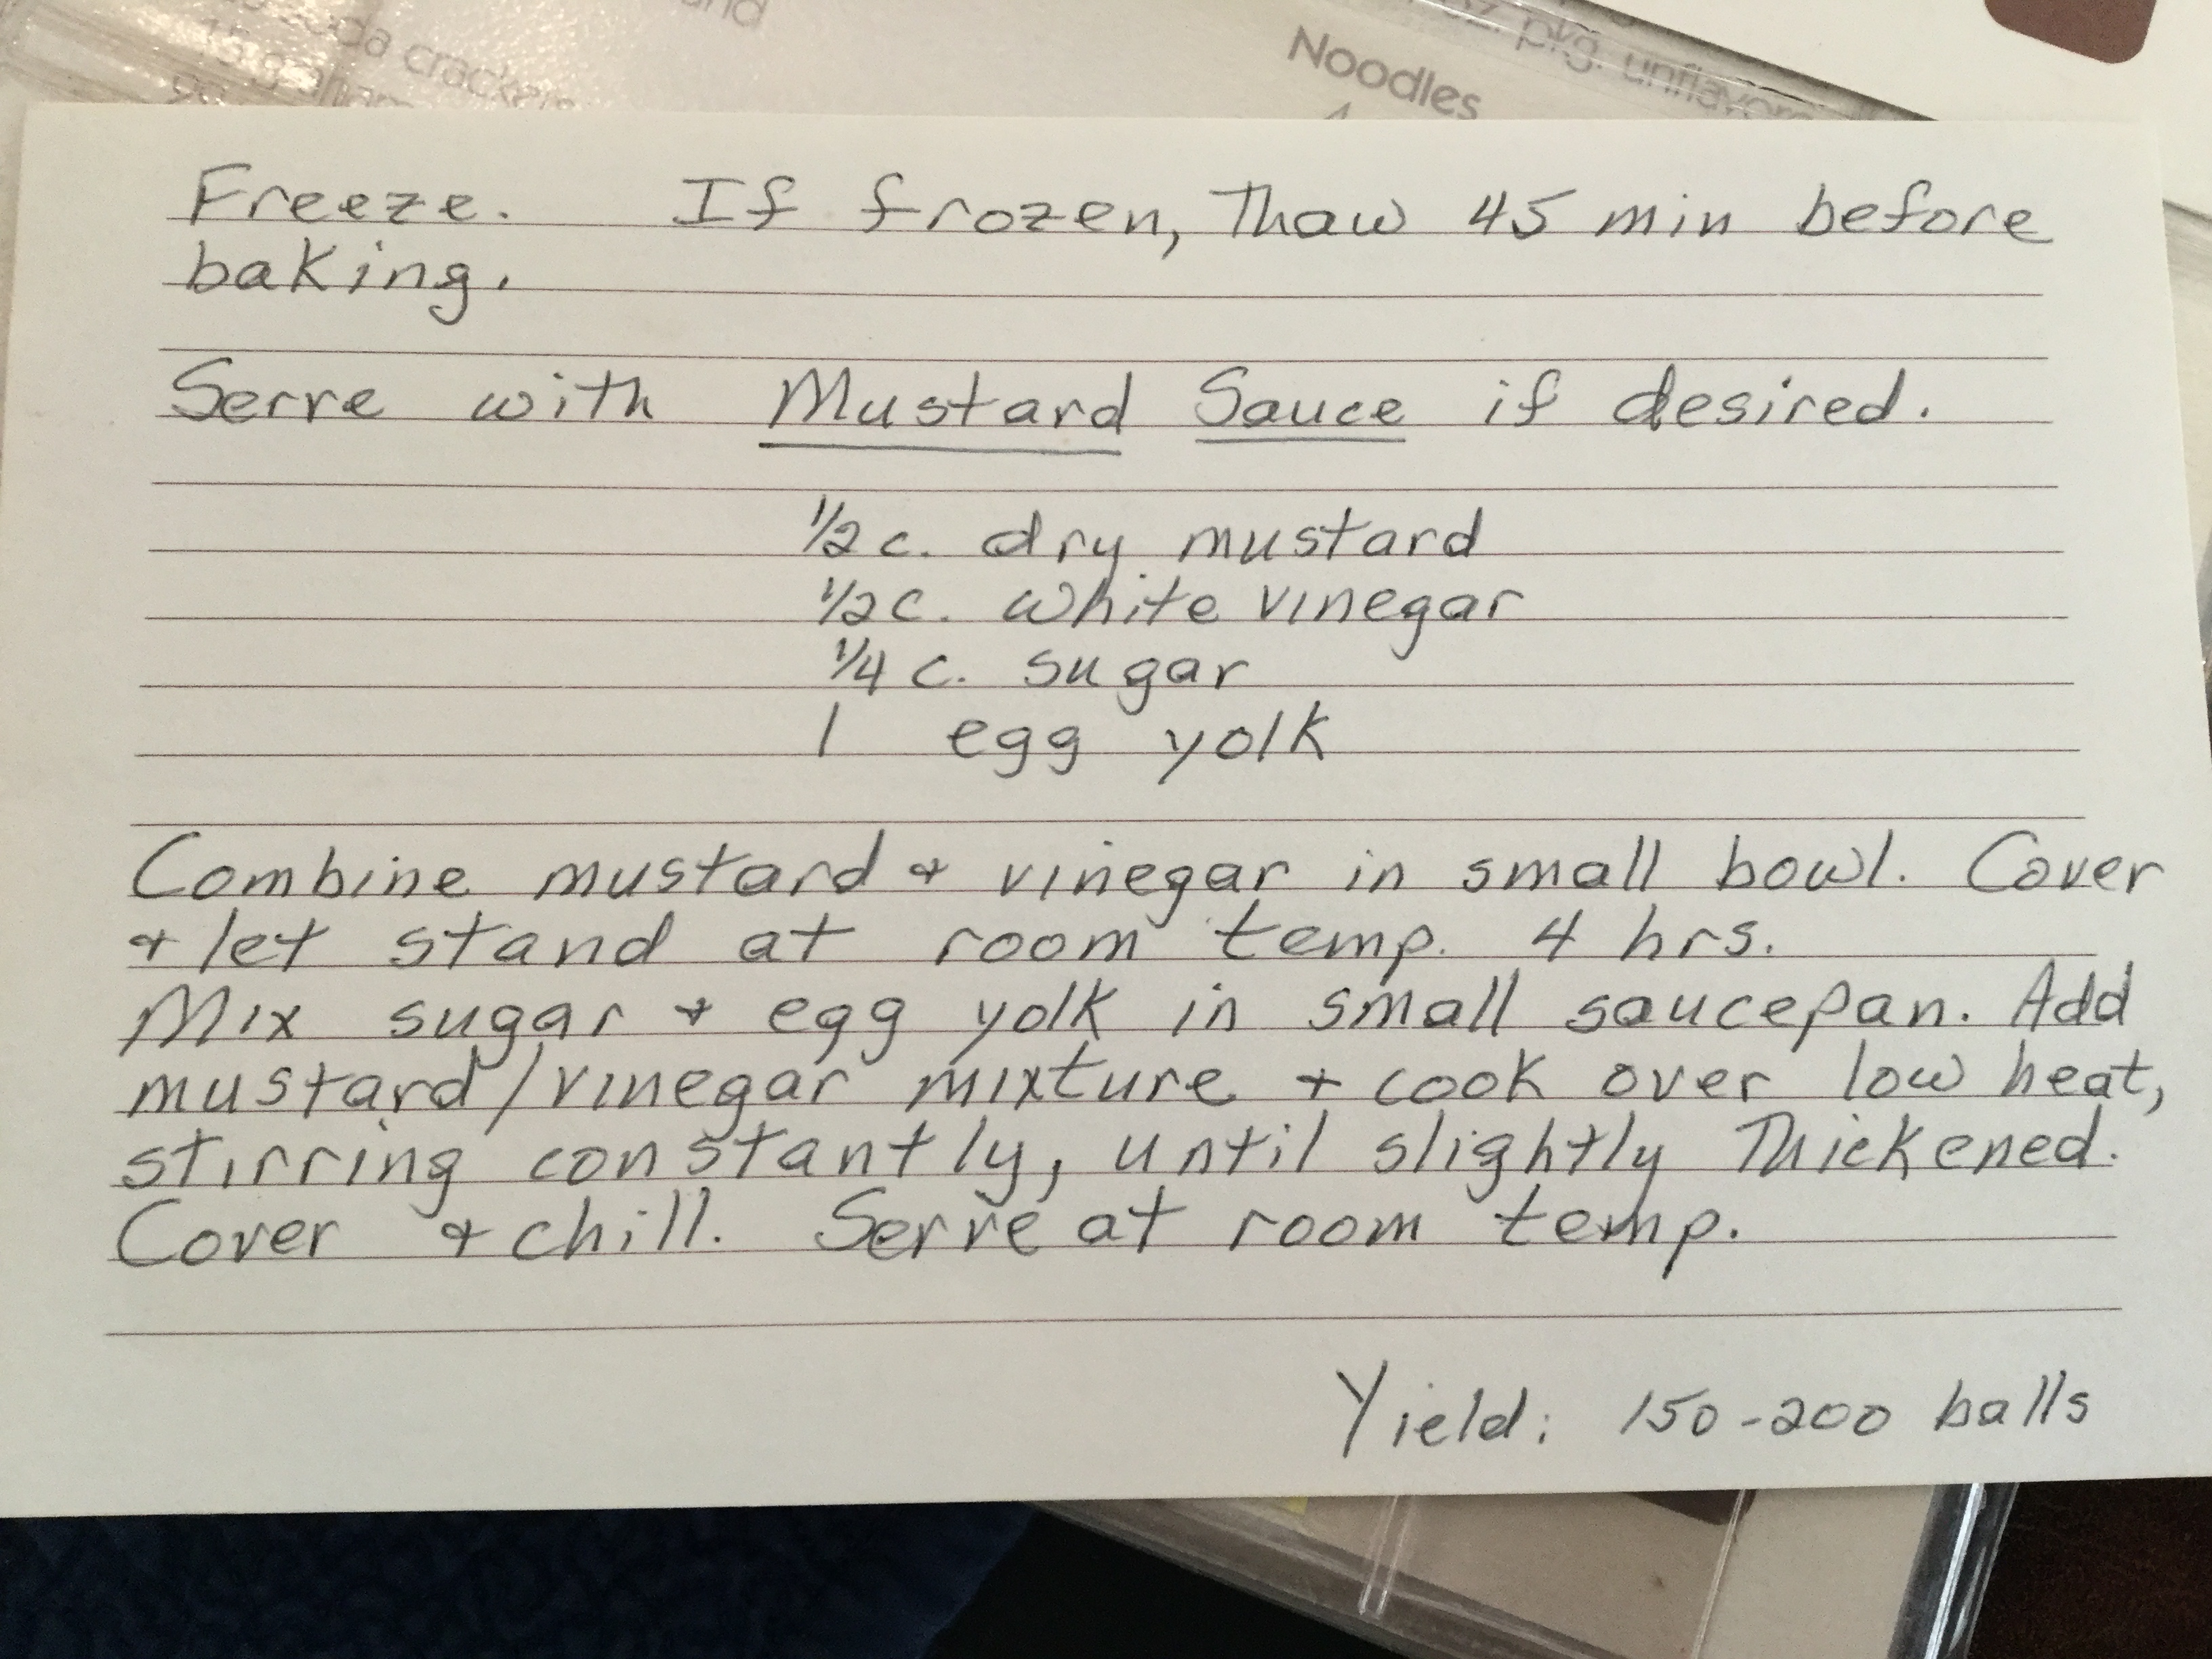 soda crackers
Noodles
pkg. unflavor
Freeze. If frozen, Thaw 45 min before
baking.
Serve with Mustard Sauce if desired.
1/2 c. dry mustard
1/2 c. white vinegar
1/4 c. sugar
1 egg yolk
Combine mustard & vinegar in small bowl. Cover
& let stand at room temp. 4 hrs.
Mix sugar & egg yolk in small saucepan. Add
mustard/vinegar mixture & cook over low heat,
stirring constantly, until slightly Thickened.
Cover & chill. Serve at room temp.
Yield: 150-200 balls